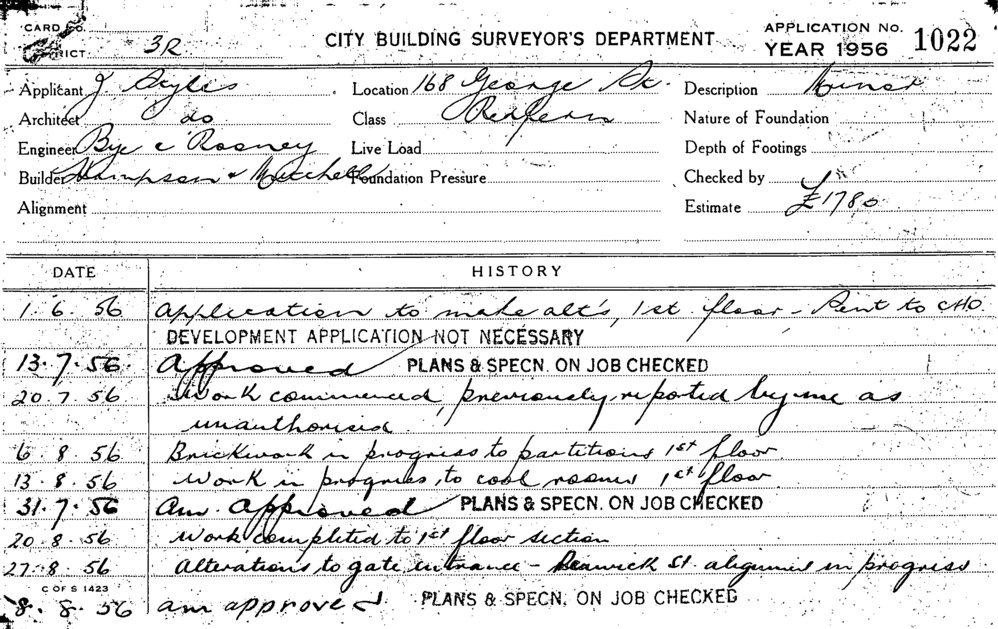 CARD No.
DISTRICT 3R
CITY BUILDING SURVEYOR'S DEPARTMENT
APPLICATION No. 1022
YEAR 1956
Applicant J Sayles
Location 168 George St.
Description Minor
Architect do
Class Redfern
Nature of Foundation
Engineer Bye & Rooney
Live Load
Depth of Footings
Builder Thompson & Mitchell
Foundation Pressure
Checked by
Alignment
Estimate £1780
DATE HISTORY
1. 6. 56 Application to make alt's, 1st floor - Sent to CHO
DEVELOPMENT APPLICATION NOT NECESSARY
13.7.56 Approved PLANS & SPECN. ON JOB CHECKED
20 7. 56 Work commenced, previously reported by me as
unauthorised
6 8. 56 Brickwork in progress to partitions 1st floor
13. 8. 56 Work in progress, to cool rooms 1st floor
31.7.56 Am. Approved PLANS & SPECN. ON JOB CHECKED
20 8. 56 Work completed to 1st floor section
27. 8. 56 Alterations to gate entrance - St. in progress
C OF S 1423
8. 8. 56 am approved PLANS & SPECN. ON JOB CHECKED